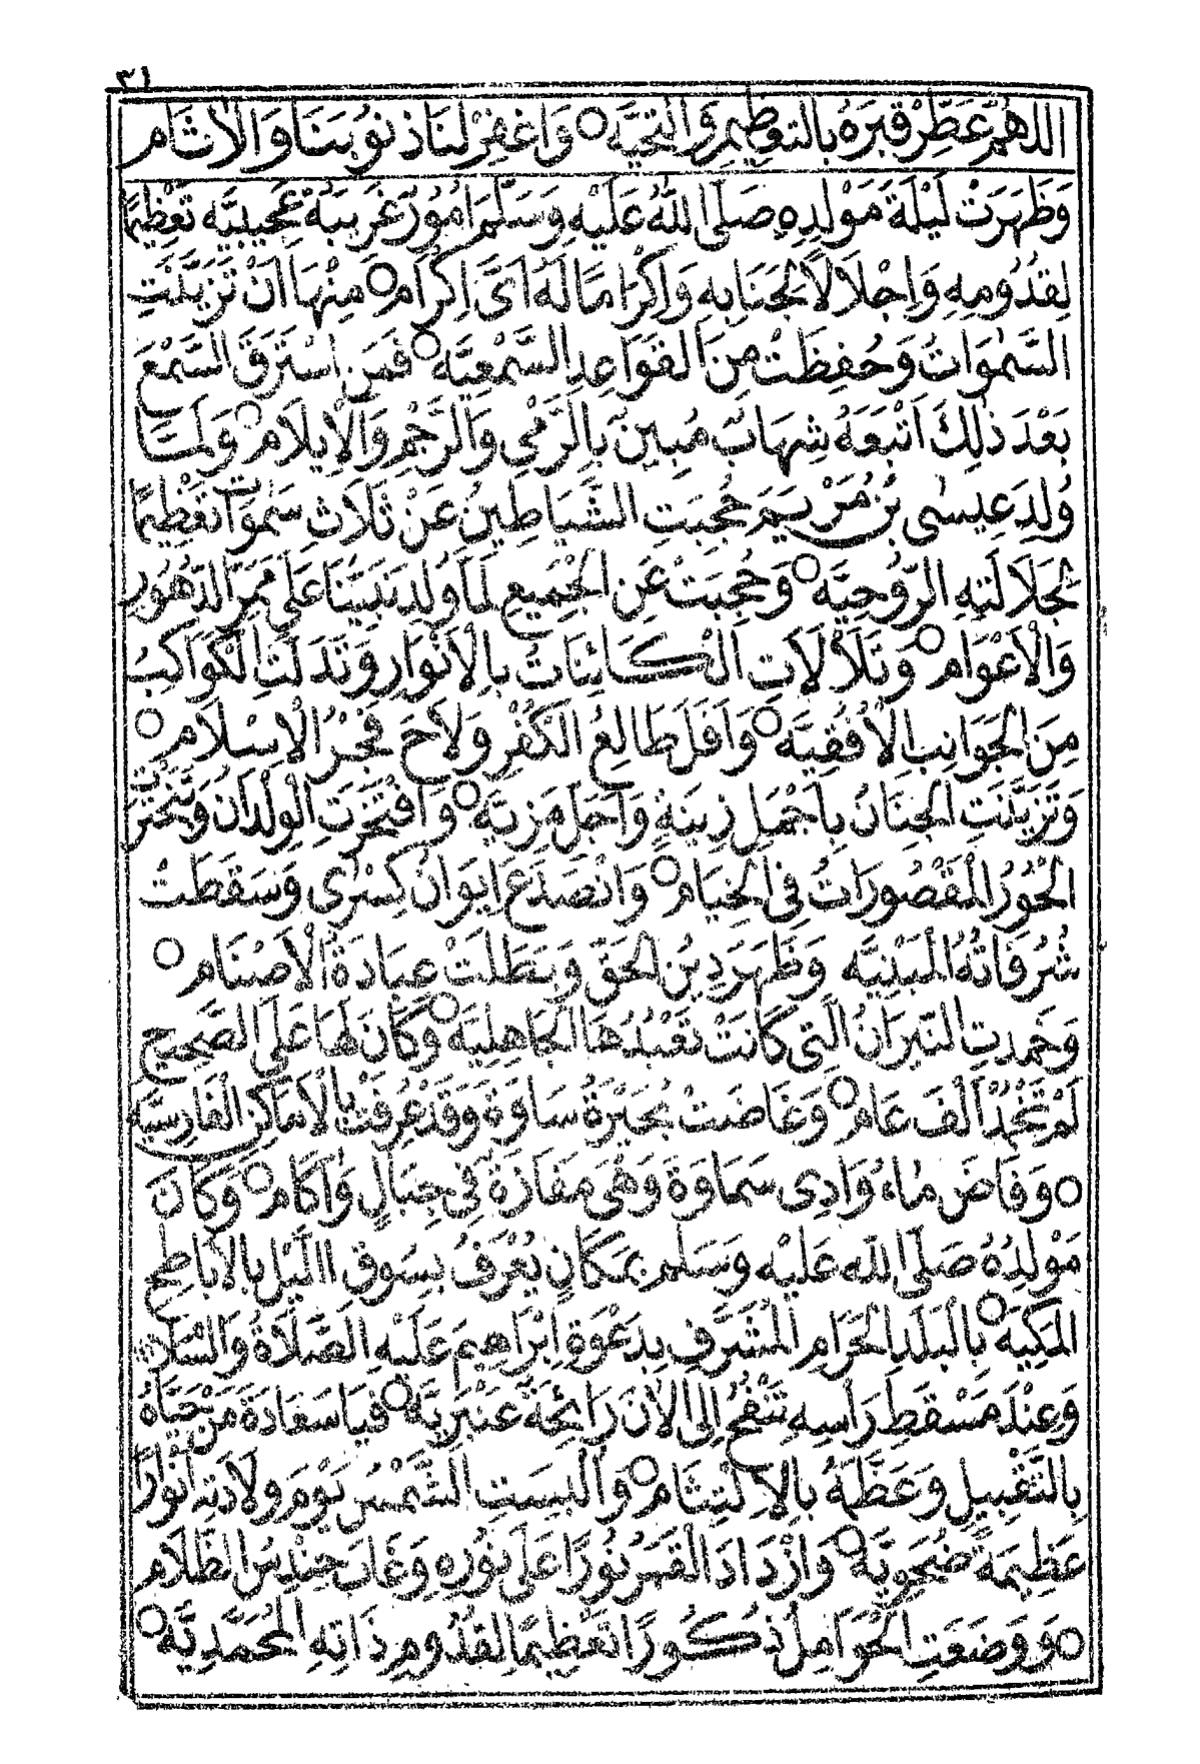 ٣١
اللهُمَّ عَطِّرْ قَبْرَهُ بِالتَّعْظِيمِ وَالتَّحِيَّهْ ○ وَاغْفِرْ لَنَا ذُنُوبَنَا وَالْاٰثَامْ
وَظَهَرَتْ لَيْلَةَ مَوْلِدِهِ صَلَّى اللهُ عَلَيْهِ وَسَلَّمَ اُمُورٌ غَرِيبَةٌ عَجِيبِيَّه تَعْظِيمًا
لِقُدُومِهِ وَاِجْلَالًا لِجَنَابِهِ وَاِكْرَامًا لَهُ اَيَّ اِكْرَامْ ○ مِنْهَا اَنْ تَزَيَّنَتِ
السَّمٰوَاتُ وَحُفِظَتْ مِنَ الْقَوَاعِدِ السَّمْعِيَّه ○ فَمَنِ اسْتَرَقَ السَّمْعَ
بَعْدَ ذٰلِكَ اَتْبَعَهُ شِهَابٌ مُبِينٌ بِالرَّمْيِ وَالرَّجْمِ وَالْاِيلَامْ ○ وَلَمَّا
وُلِدَ عِيسٰى بْنُ مَرْيَمَ حُجِبَتِ الشَّيَاطِينُ عَنْ ثَلَاثِ سَمٰوَاتٍ تَعْظِيمًا
لِجَلَالَتِهِ الرُّوحِيَّه ○ وَحُجِبَتْ عَنِ الْجَمِيعِ لَمَّا وُلِدَ نَبِيُّنَا عَلَى مَمَرِّ الدُّهُورِ
وَالْاَعْوَامْ ○ وَتَلَأْلَأَتِ الْكَائِنَاتُ بِالْاَنْوَارِ وَتَدَلَّتِ الْكَوَاكِبُ
مِنَ الْجَوَانِبِ الْاُفُقِيَّه ○ وَاَفَلَ طَالِعُ الْكُفْرِ وَلَاحَ فَجْرُ الْاِسْلَامْ ○
وَتَزَيَّنَتِ الْجِنَانُ بِاَجْمَلِ زِينَةٍ وَاَجَلِّ مَزِيَّه ○ وَافْتَخَرَتِ الْوِلْدَانُ وَتَبَخْتَرَتِ
الْحُورُ الْمَقْصُورَاتُ فِي الْخِيَامْ ○ وَانْصَدَعَ اِيوَانُ كِسْرٰى وَسَقَطَتْ
شُرُفَاتُهُ الْمَبْنِيَّه وَظَهَرَ دِينُ الْحَقِّ وَبَطَلَتْ عِبَادَةُ الْاَصْنَامْ ○
وَخَمِدَتِ النِّيرَانُ الَّتِي كَانَتْ تَعْبُدُهَا الْجَاهِلِيَّه ○ وَكَانَ لَهَا عَلَى الصَّحِيحِ
لَمْ تَخْمُدْ اَلْفَ عَامْ ○ وَغَاضَتْ بُحَيْرَةُ سَاوَةَ وَقَدْ عُرِفَتْ بِالْاَمَاكِنِ الْفَارِسِيَّه
○ وَفَاضَ مَاءُ وَادِي سَمَاوَةَ وَهِيَ مَفَازَةٌ فِي جِبَالٍ وَاٰكَامْ ○ وَكَانَ
مَوْلِدُهُ صَلَّى اللهُ عَلَيْهِ وَسَلَّمَ بِمَكَانٍ يُعْرَفُ بِسُوقِ اللَّيْلِ بِالْاَبَاطِحِ
الْمَكِّيَّه ○ بِالْبَلَدِ الْحَرَامِ الْمُشَرَّفِ بِدَعْوَةِ اِبْرَاهِيمَ عَلَيْهِ الصَّلَاةُ وَالسَّلَامْ
وَعِنْدَ مَسْقَطِ رَأْسِهِ تَنْفَحُ اِلَى الْاٰنَ رَائِحَةٌ عَنْبَرِيَّه ○ فَيَا سَعَادَةَ مَنْ حَيَّاهُ
بِالتَّقْبِيلِ وَعَظَّمَهُ بِالْاِلْتِثَامْ ○ وَاُلْبِسَتِ الشَّمْسُ يَوْمَ وِلَادَتِهِ اَنْوَارًا
عَظِيمَةً ضُحَوِيَّه ○ وَازْدَادَ الْقَمَرُ نُورًا عَلَى نُورِهِ وَغَابَ حِنْدِسُ الظَّلَامْ
○ وَوَضَعَتِ الْحَوَامِلُ ذُكُورًا تَعْظِيمًا لِقُدُومِ ذَاتِهِ الْمُحَمَّدِيَّه ○